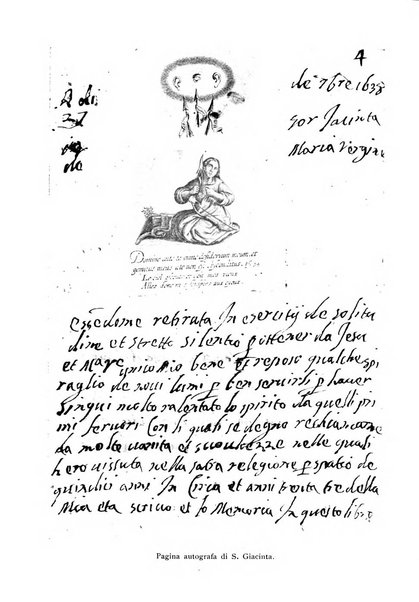 4
A di
de 7bre 1638
37
sor Jacinta
Maria Vergine
Domine ante te omne desiderium meum, et
gemitus meus a te non est
essedome retirata In exercitij de solita
dine et stretto silentio p ottener da Jesu
et Mare unico Mio bene et reposo qualche spi
raglio de novi lumi p ben servirli p haver
sinqui molto ralentato lo spirito da quelli pri
mi fervori Con li quali se degno rechiamarme
da molte vanita et sciocchezze nelle quali
hero vissuta nella sacra relegione p spatio de
quindici anni In Circa et anni trenta tre della
Mia eta scrivo et fo Memoria In questo libro
Pagina autografa di S. Giacinta.